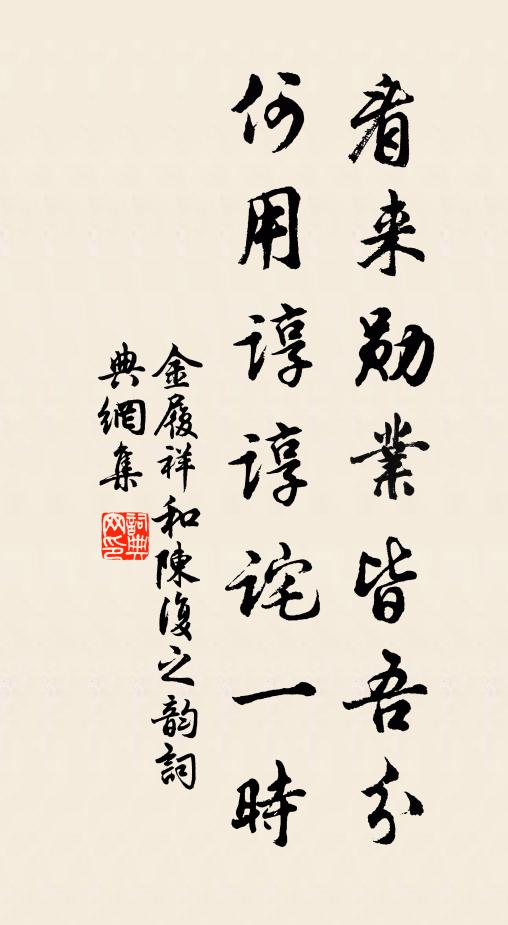 看来勋業皆吾分
何用諄諄詫一時
金履祥和陳復之韵詞
典網集
詞典
网印